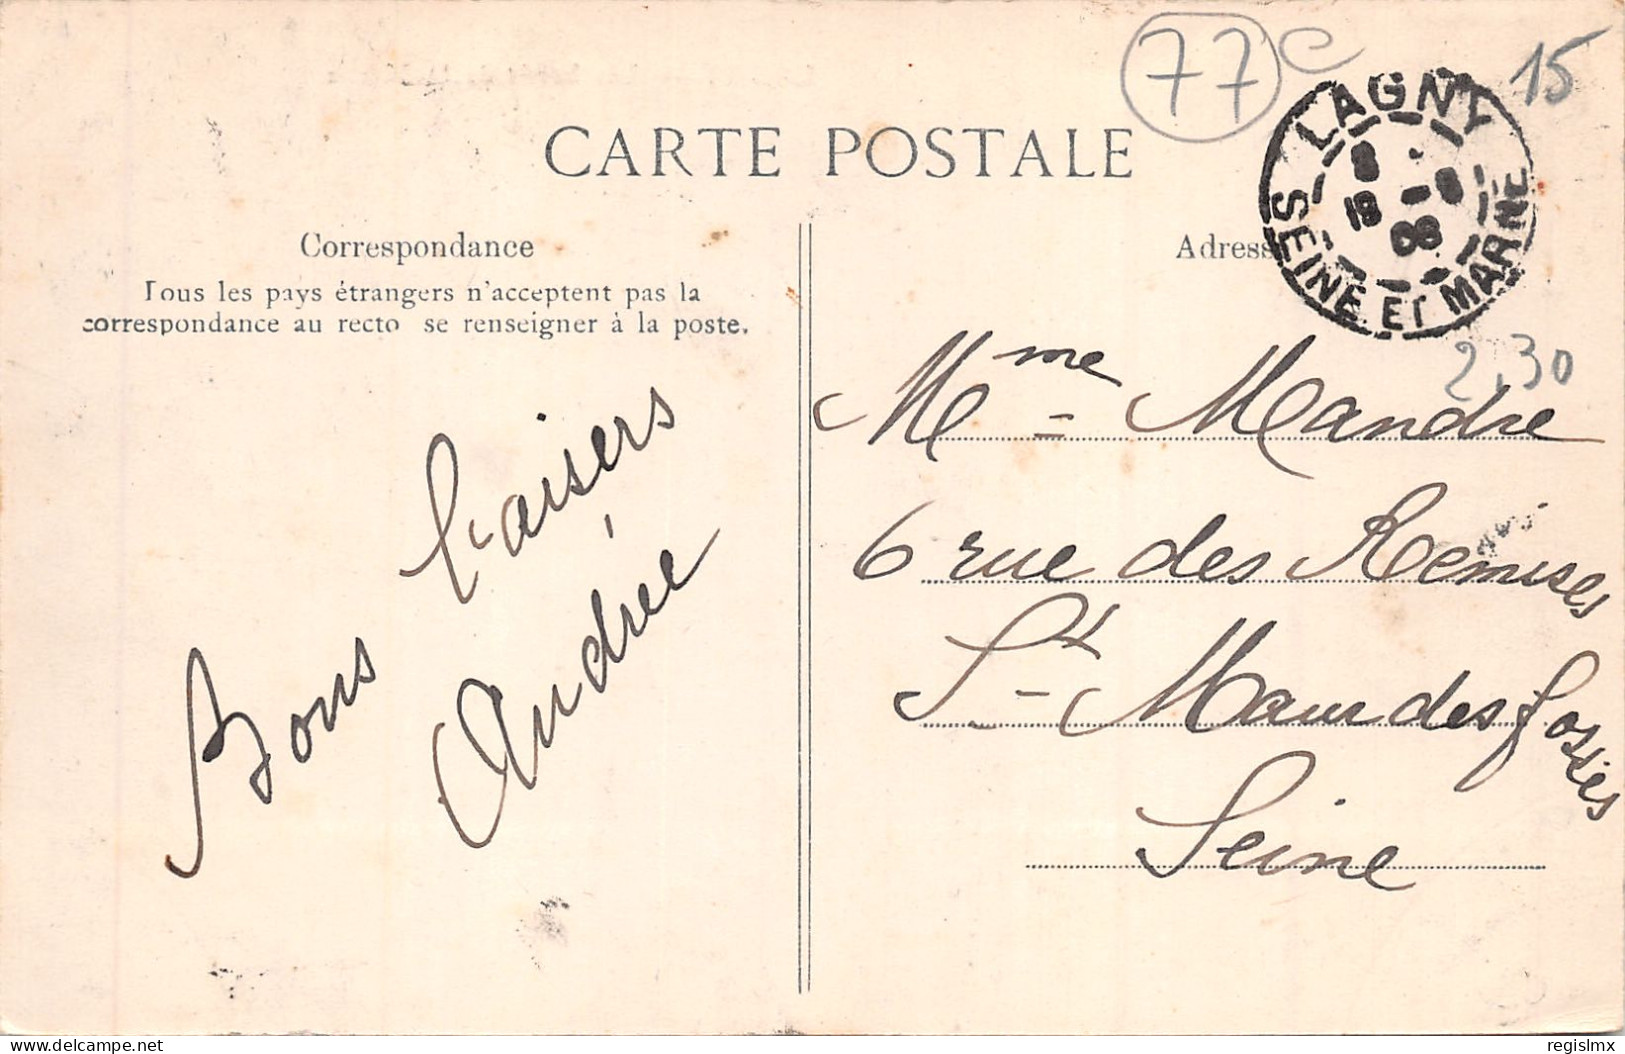 77 C
15
CARTE POSTALE
LAGNY
SEINE ET MARNE
Correspondance
Tous les pays étrangers n'acceptent pas la
correspondance au recto se renseigner à la poste.
Bons baisers
Andrée
Adresse
2,30
Mme Mandre
6 rue des Remises
St Maur des fossés
Seine
delcampe.net
regislmx